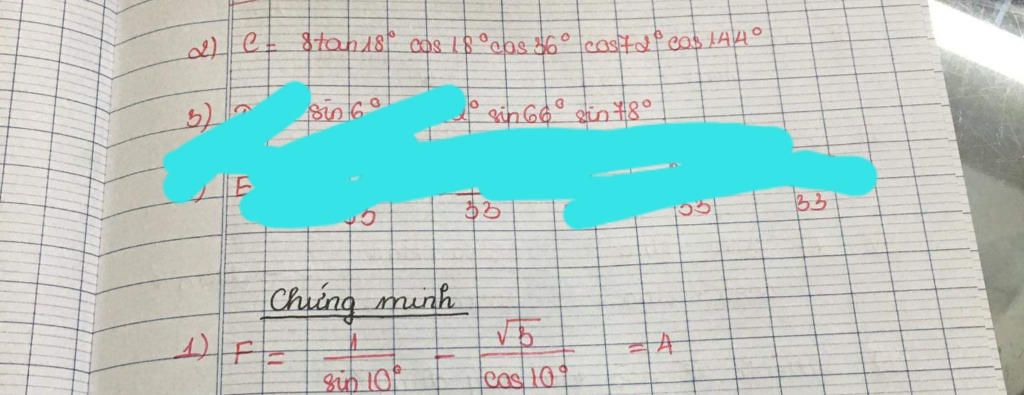 2) C = 8tan18° cos 18° cos 36° cos72° cos 144°
3) sin 6° sin 66° sin 78°
E 33 33 33 33
Chứng minh
1) F = 1/sin 10° - √3/cos 10° = 4